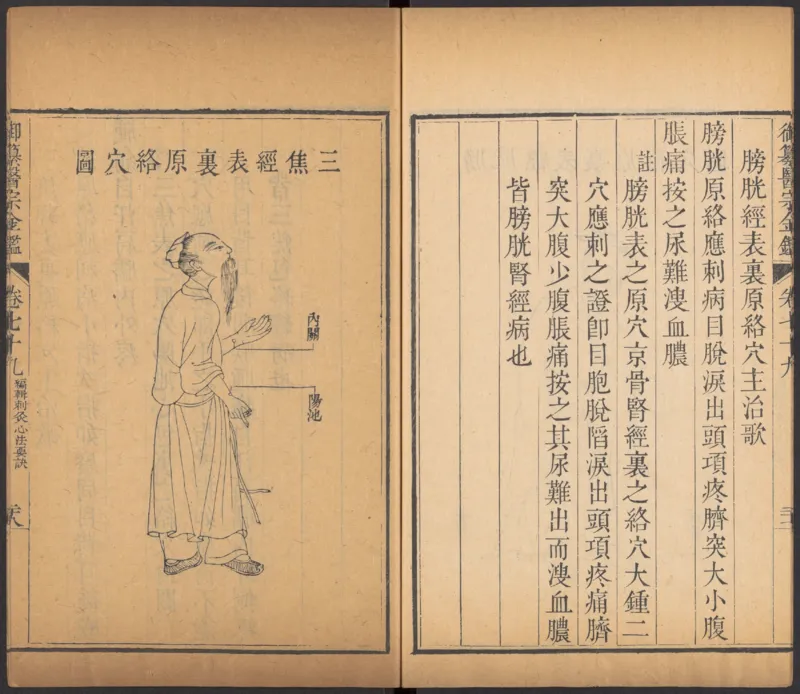 膀胱經表裏原絡穴主治歌
膀胱原絡應刺病目脫淚出頭項疼臍突大小腹
脹痛按之尿難溲血膿
註膀胱表之原穴京骨腎經裏之絡穴大鍾二
穴應刺之證卽目胞脫陷淚出頭項疼痛臍
突大腹少腹脹痛按之其尿難出而溲血膿
皆膀胱腎經病也
三焦經表裏原絡穴圖
內關
陽池
御纂醫宗金鑑
卷七十九
編輯刺灸心法要訣